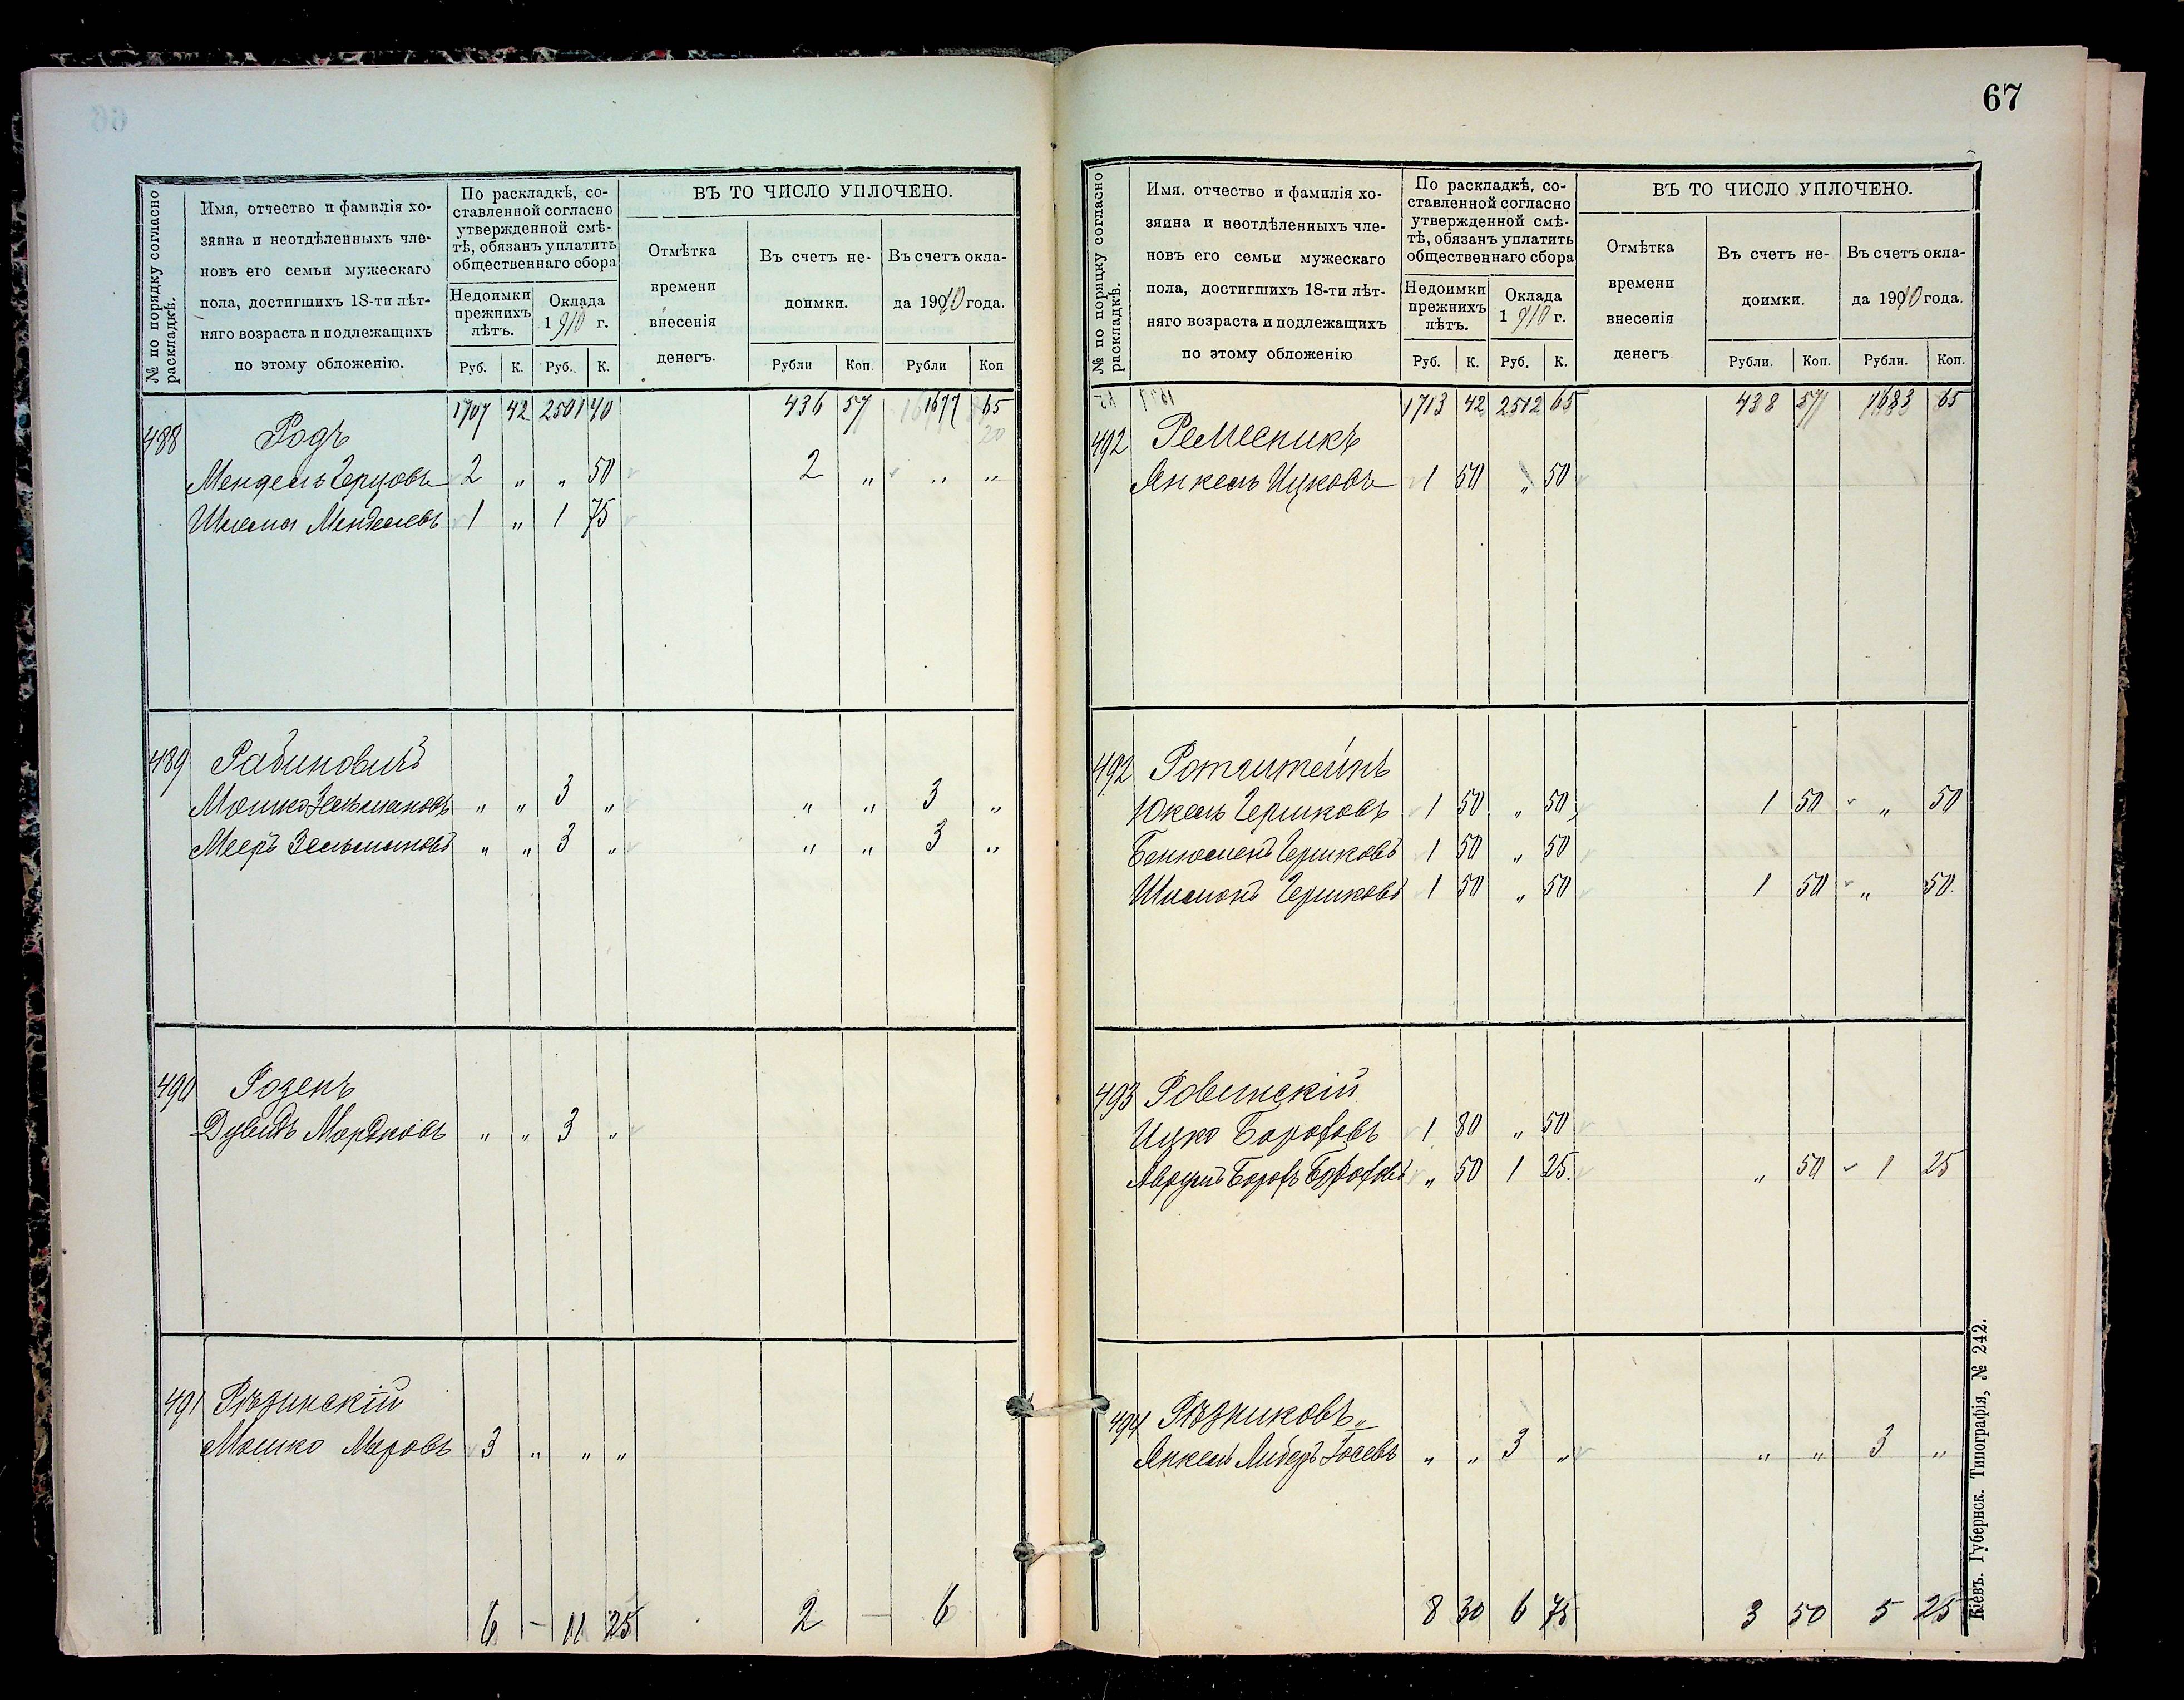 67
№ по порядку согласно раскладкѣ.
Имя, отчество и фамилія хо-
зяина и неотдѣленныхъ чле-
новъ его семьи мужескаго
пола, достигшихъ 18-ти лѣт-
няго возраста и подлежащихъ
по этому обложенію.
По раскладкѣ, со-
ставленной согласно
утвержденной смѣ-
тѣ, обязанъ уплатить
общественнаго сбора
Недоимки
прежнихъ
лѣтъ.
Оклада
1910 г.
Руб. К. Руб. К.
ВЪ ТО ЧИСЛО УПЛОЧЕНО.
Отмѣтка
времени
внесенія
денегъ.
Въ счетъ не-
доимки.
Въ счетъ окла-
да 1910 года.
Рубли Коп. Рубли Коп
1707 42 2501 40 436 57 1677 65
20
488 Родъ
Мендель Герцовъ 2 „ „ 50 2 „ „ „
Шлема Менделевъ 1 „ 1 75
489 Рабиновичъ
Мошко Зельмановъ „ „ 3 „ „ „ 3 „
Мееръ Зельмановъ „ „ 3 „ „ „ 3 „
490 Розенъ
Дувидъ Мордковъ „ „ 3 „
491 Рѣзинскій
Мошко Меровъ 3 „ „ „
6 – 11 25 2 – 6
№ по порядку согласно раскладкѣ.
Имя. отчество и фамилія хо-
зяина и неотдѣленныхъ чле-
новъ его семьи мужескаго
пола, достигшихъ 18-ти лѣт-
няго возраста и подлежащихъ
по этому обложенію
По раскладкѣ, со-
ставленной согласно
утвержденной смѣ-
тѣ, обязанъ уплатить
общественнаго сбора
Недоимки
прежнихъ
лѣтъ.
Оклада
1910 г.
Руб. К. Руб. К.
ВЪ ТО ЧИСЛО УПЛОЧЕНО.
Отмѣтка
времени
внесенія
денегъ
Въ счетъ не-
доимки.
Въ счетъ окла-
да 1910 года.
Рубли. Коп. Рубли. Коп.
1713 42 2512 65 438 57 1683 65
492 Ремесникъ
Янкель Ицковъ 1 50 „ 50
492 Ротштейнъ
Юкель Гершковъ 1 50 „ 50 1 50 „ 50
Бенюменъ Гершковъ 1 50 „ 50
Шимонъ Гершковъ 1 50 „ 50 1 50 „ 50
493 Ровинскій
Ицко Борофовъ 1 80 „ 50
„ 50 1 25 „ 50 1 25
494 Рѣзниковъ „
Янкель Либеръ Іосевъ „ „ 3 „ „ „ 3 „
8 30 6 75 3 50 5 25
Кіевъ. Губернск. Типографія, № 242.